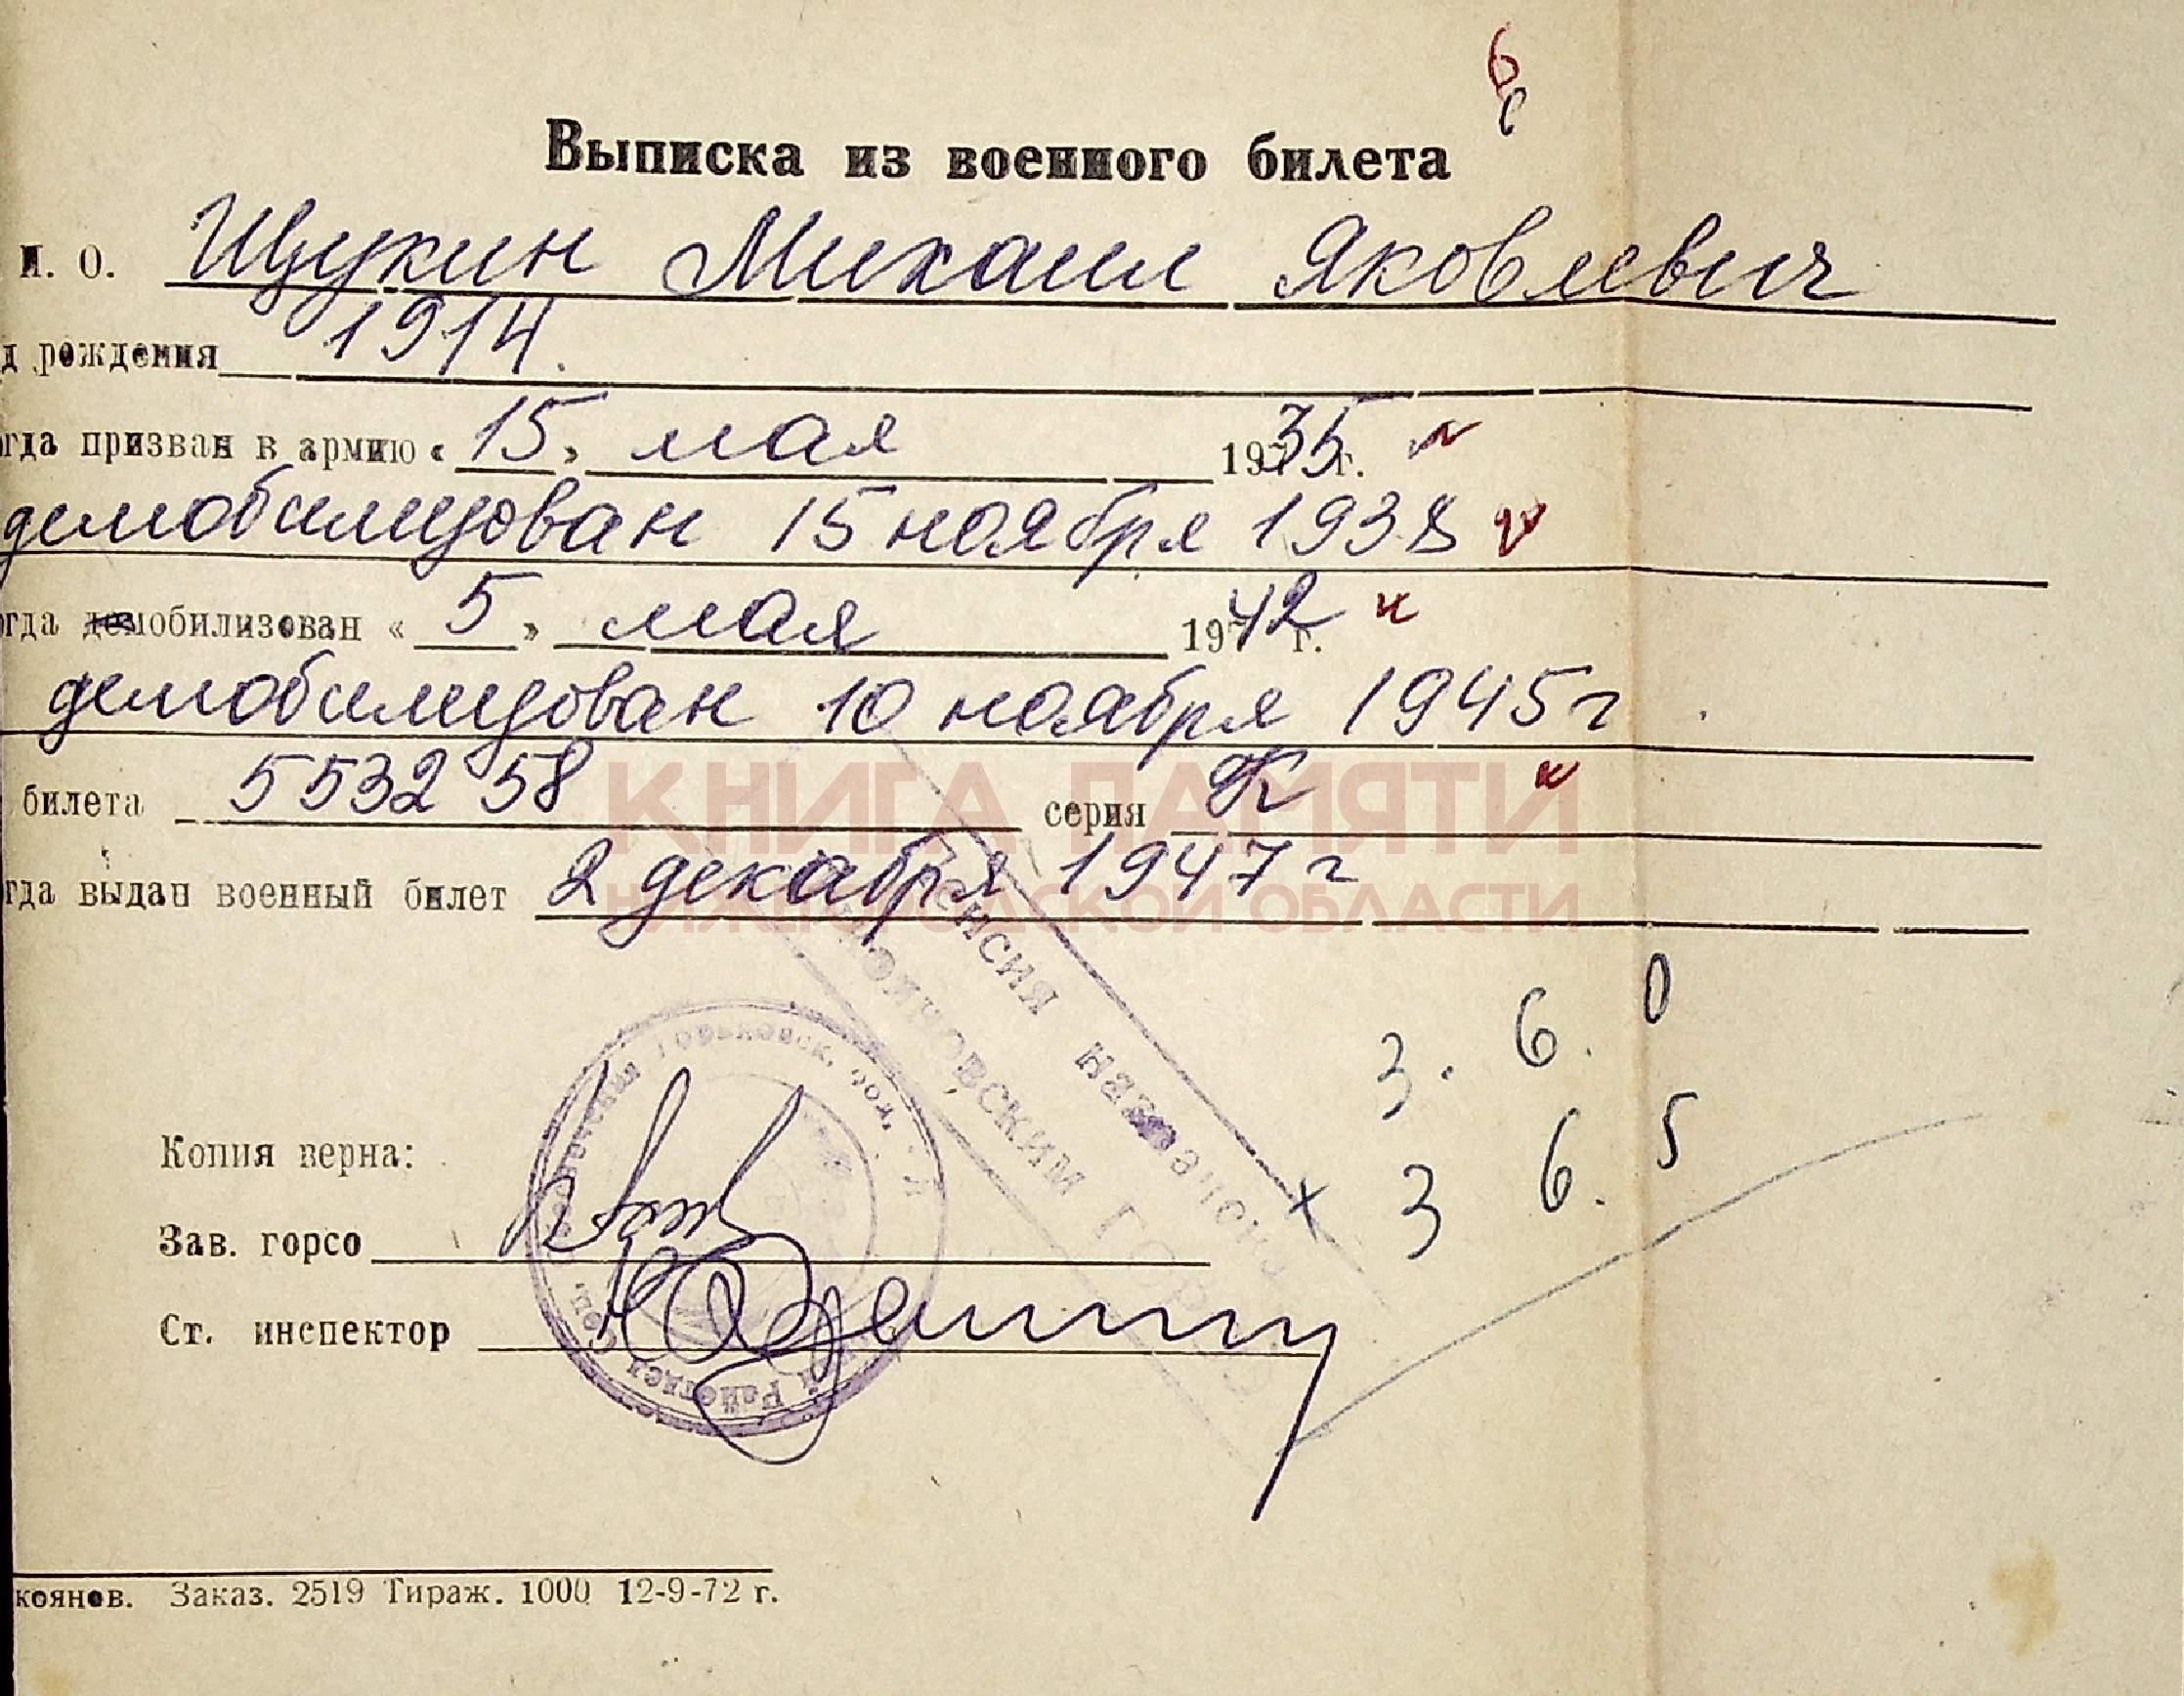 6
Выписка из военного билета
И. О. Щукин Михаил Яковлевич
д рождения 1914.
огда призван в армию « 15 » мая 1935 г.
демобилизован 15 ноября 1938
огда мобилизован « 5 » мая 1942 г.
демобилизован 10 ноября 1945 г
билета 553258 серия К
КНИГА ПАМЯТИ
гда выдан военный билет 2 декабря 1947 г
НИЖЕГОРОДСКОЙ ОБЛАСТИ
Пенсия назначена
3. 6. 0
Горьковск. обл.
Копия верна:
3 6. 5
Зав. горсо
Ст. инспектор
коянов. Заказ. 2519 Тираж. 1000 12-9-72 г.